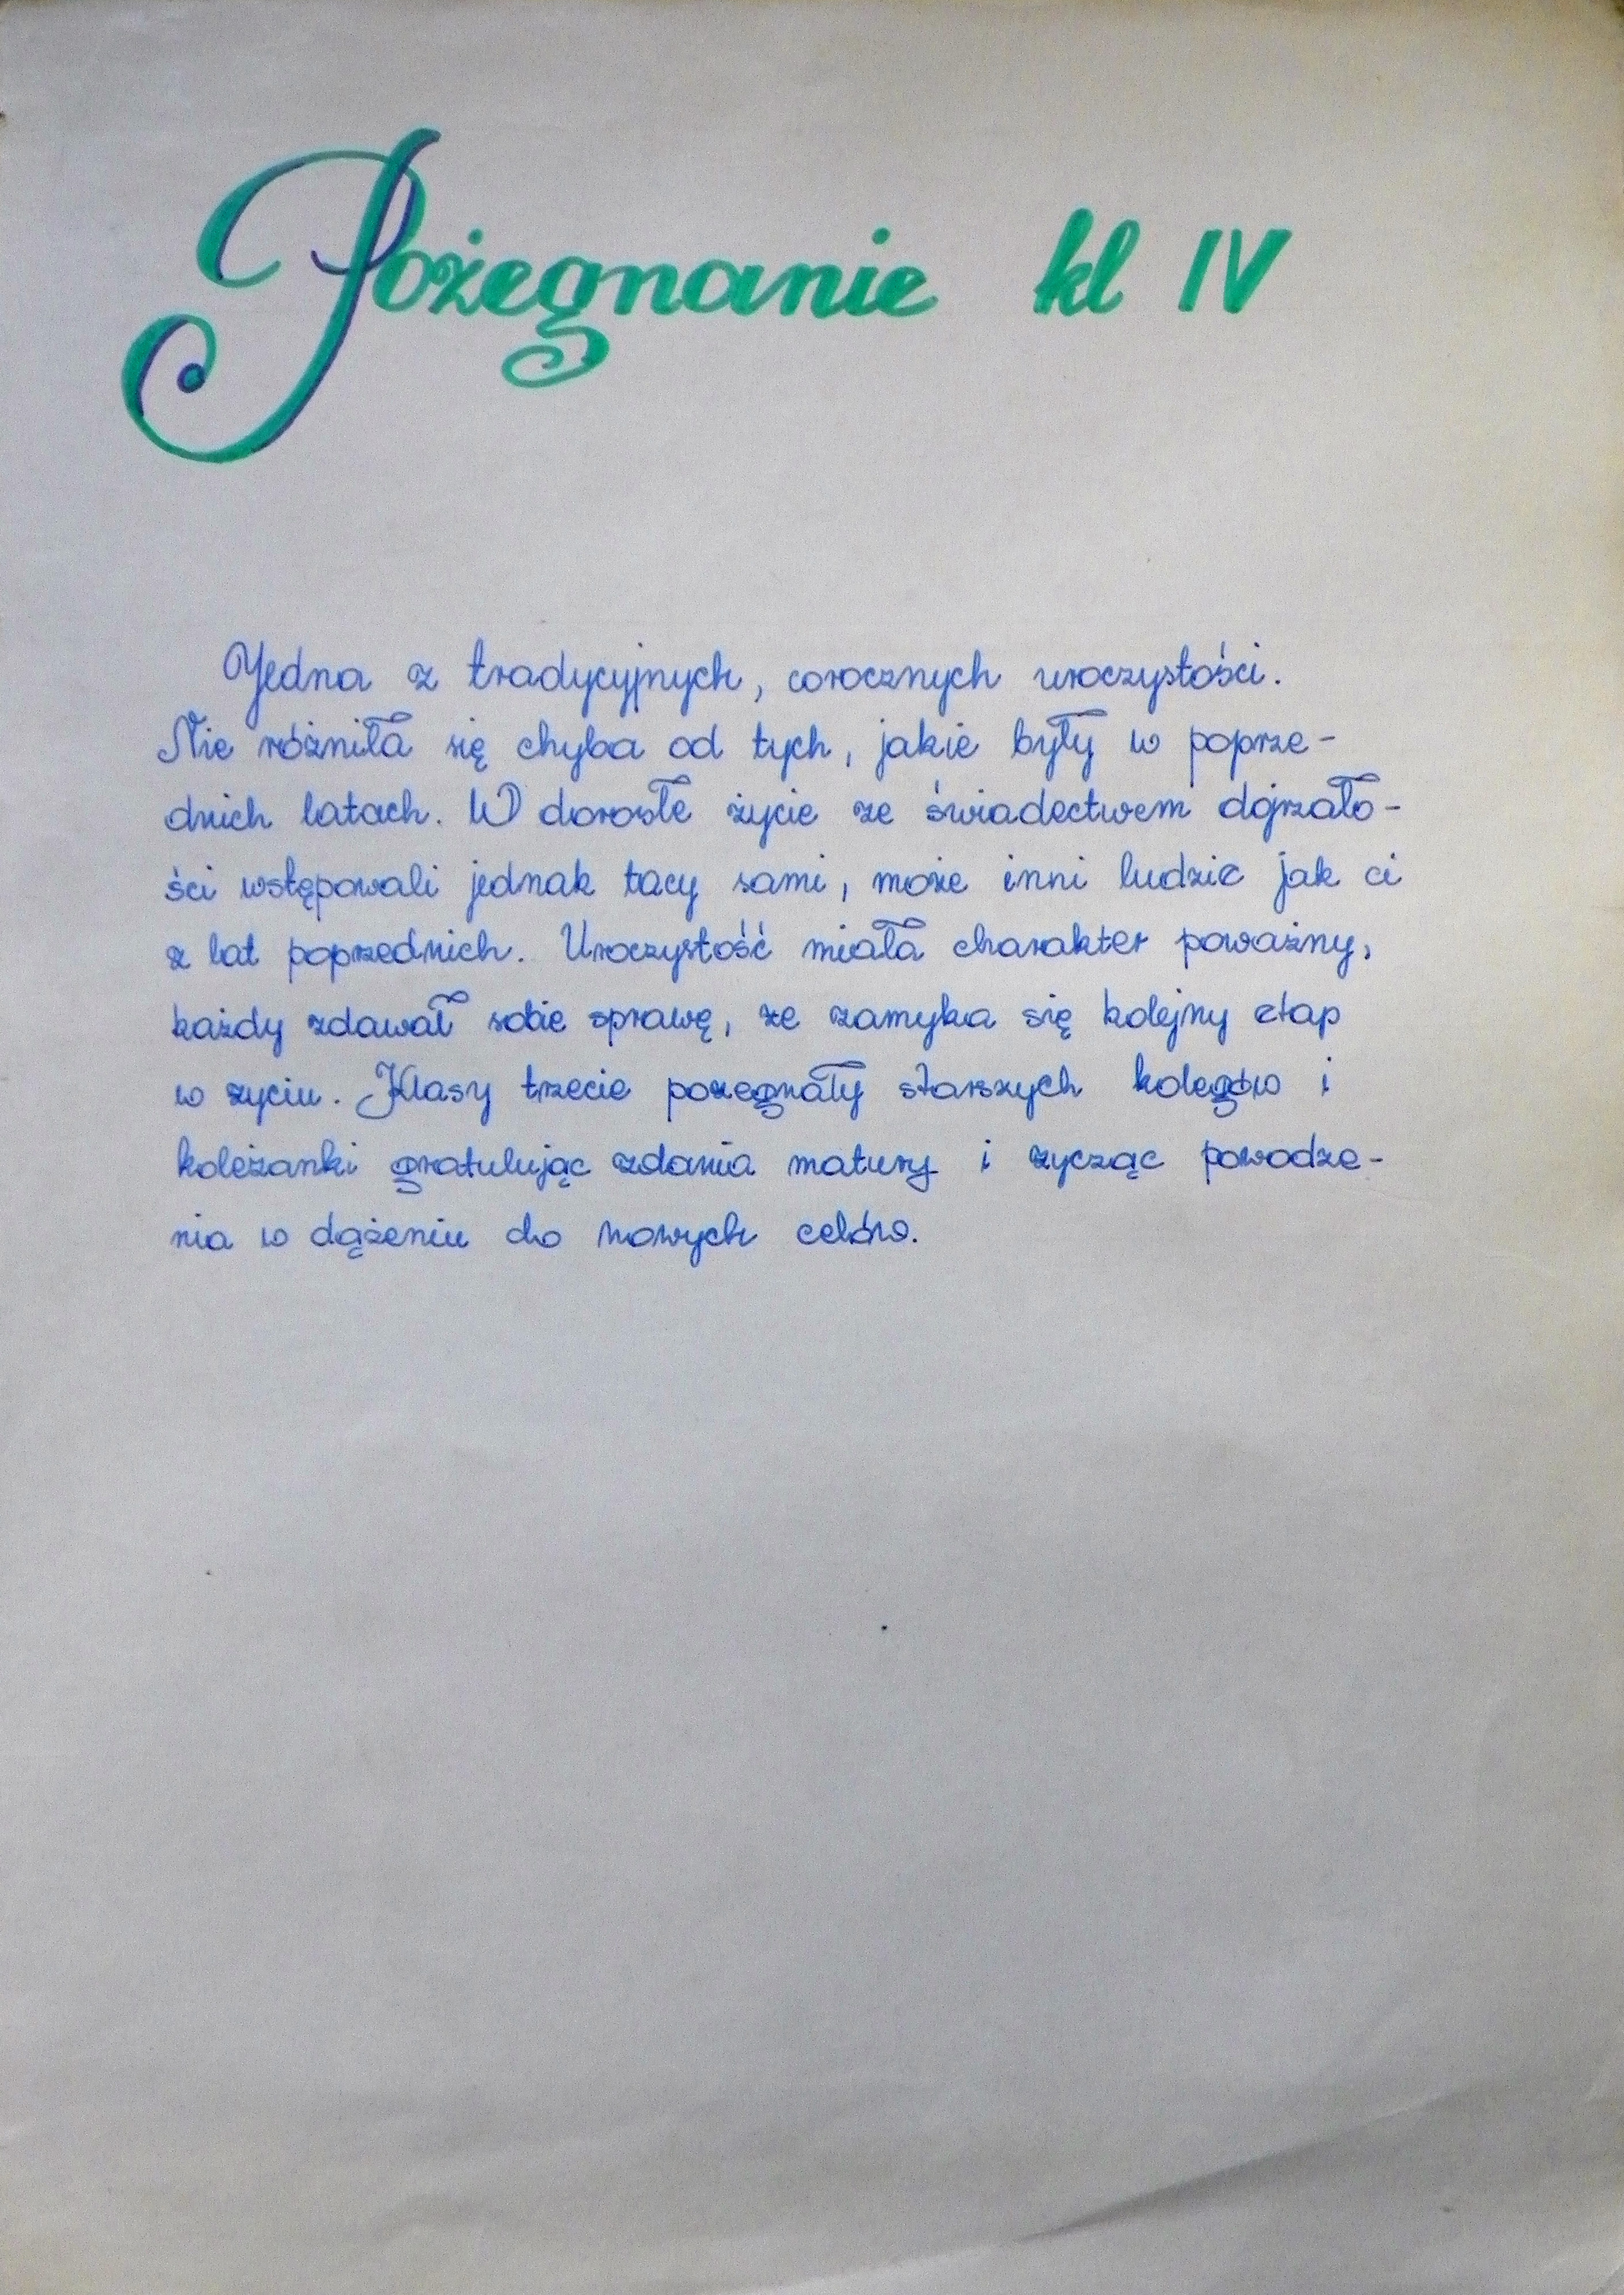 Pożegnanie kl IV
Jedna z tradycyjnych, corocznych uroczystości.
Nie różniła się chyba od tych, jakie były w poprze-
dnich latach. W dorosłe życie ze świadectwem dojrzało-
ści wstępowali jednak tacy sami, może inni ludzie jak ci
z lat poprzednich. Uroczystość miała charakter poważny,
każdy zdawał sobie sprawę, że zamyka się kolejny etap
w życiu. Klasy trzecie pożegnały starszych kolegów i
koleżanki gratulując zdania matury i życząc powodze-
nia w dążeniu do nowych celów.